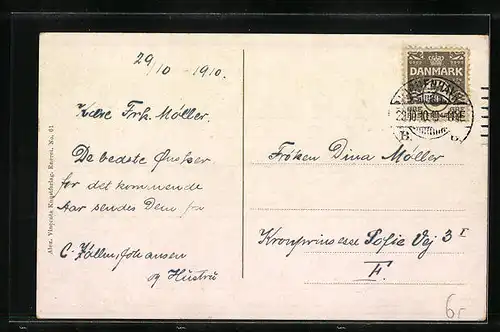 29/10 - 1910.
Kære Frk. Møller.
De bedste Ønsker
for det kommende
Aar sendes Dem fra
C. Johansen
og Hustru
Alex. Vincents Kunstforlag, Eneret, No. 61
DANMARK
KJØBENHAVN
B.
Frøken Dina Møller
Kronprinsesse Sofie Vej 3 I
F.
6,-